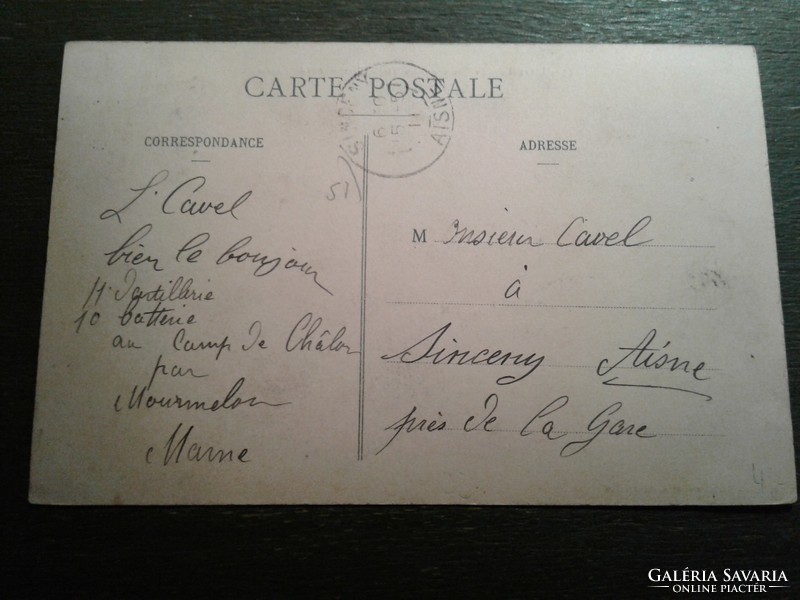 CARTE POSTALE
SINCENY
AISNE
CORRESPONDANCE
ADRESSE
51
L. Cavel
bien le bonjour
11. d'artillerie
10 batterie
au Camp de Châlon
par
Mourmelon
Marne
M onsieur Cavel
à
Sinceny Aisne
près de la Gare
4
GALÉRIA SAVARIA
ONLINE PIACTÉR